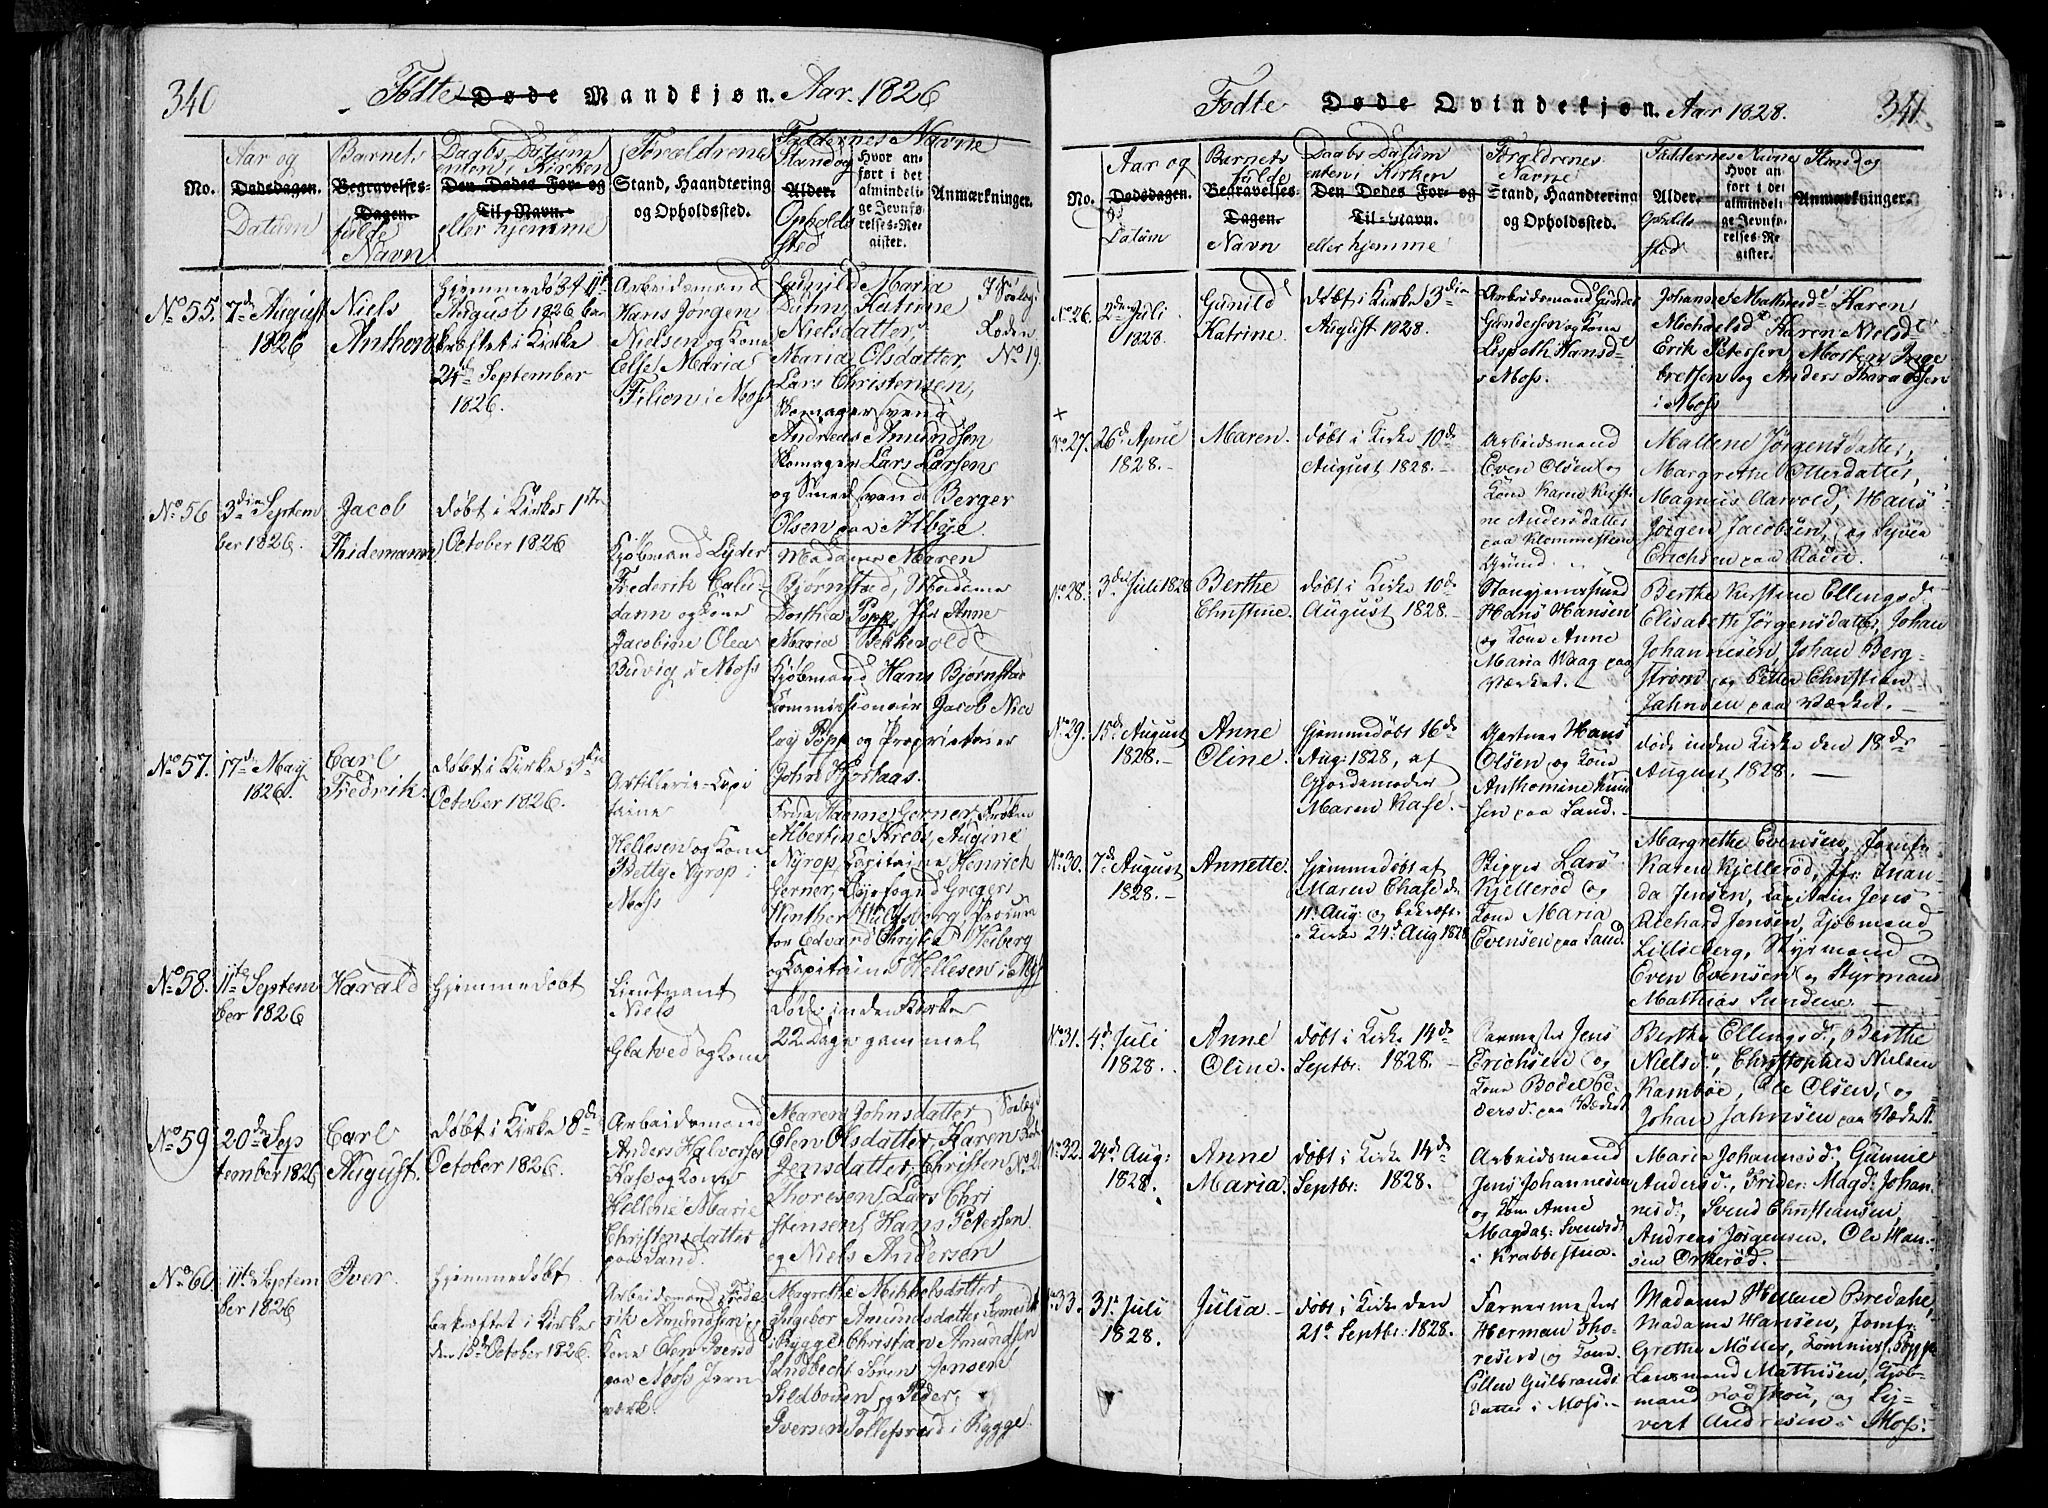 340
Fødte Døde Mandkjøn. Aar 1826
No.
Aar og
Dødsdagen.
Datum
Barnets
Begravelses-
Dagen.
fulde
Navn
Daabs Datum
enten i Kirken
Den Dødes For- og
Til-Navn.
eller hjemme
Forældrene
Stand, Haandtering
og Opholdssted.
Faddernes Navne
Stand og
Alder.
Opholds
sted
Hvor an-
ført i det
almindeli-
ge Jevnfø-
relses-Re-
gister.
Anmærkninger.
No 55.
7de August
1826
Niels
Anthon
Hjemmedøbt
August 1826 be
kræftet i Kirke
24de September
1826.
Arbeidsmand
Hans Jørgen
Nielsen og Kone
Else Maria
Filion i Moss
Gunild Maria
Dühn, Katrine
Nielsdatter,
Maria Olsdatter,
Lars Christensen,
Skomagersvend
Andreas Amundsen
Skomager Lars Larsen
og Smedsvend Berger
Olsen paa Jelbye.
No 19.
No 56
3die Septem
ber 1826.
Jacob
Thidemann
døbt i Kirke 1ste
October 1826
Kjøbmand Lyder
Frederik Calu-
dann og Kone
Jacobine Olea
Budvig i Moss
Madame Maren
Bjørnstad, Madame
Dorthea Popp, Jfr Anne
Maria Bekkevold
Kjøbmand Hans Bjørnstad
Commissionair Jacob Nico
lay Popp og Proprietair
John Hjortaas.
No 57.
17de May
1826.
Carl
Fredrik.
døbt i Kirke
October 1826.
Artillerie-Capi
taine
Hellesen og Kone
Bettye Nyrop i
Moss
Frue Hanne Gerner, Frøken
Albertine Krebs, Augine
Nyrop, Capitaine Henrich
Gerner, Byefogd Gregers
Winther Wulfsberg, Procura
tor Edvard Christie Heiberg
og Capitaine Hellesen i Moss
No 58.
11te Septem
ber 1826
Harald
Hjemmedøbt
Lieutnant
Niels
Glatved og Kone
død inden Kirke
22 Dage gammel
No 59
20de Sep
tember 1826
Carl
August.
døbt i Kirke 8de
October 1826.
Arbeidsmand
Anders Halvorsen
Kase og Kone
Hellene Marie
Christensdatter
paa Land.
Maren Johnsdatter
Elen Olsdatter, Karen
Jensdatter, Christen
Thoresen, Lars Chri
stensen, Hans Petersen
og Niels Andersen
No 21
No 60
11te Septem
ber 1826
Iver.
Hjemmedøbt
bekræftet i Kirke
den 15de October 1826.
Arbeidsmand Fride
rik Amundsen og
Kone Elen Iversd
paa Moss Jern
værk.
Magrethe Mikkelsdatter
Ingebor Amundsdatter
i Rygge Christian Amundsen
Sandbecht Søren Jensen
Sildboden og Peder
Iversen Tollefsrød i Rygge.
341
Fødte Døde Qvindekjøn. Aar 1828.
No.
Aar og
Dødsdagen.
Datum
Barnets
fulde
Begravelses-
Dagen.
Navn
Daabs Datum
enten i Kirken
Den Dødes For- og
Til-Navn.
eller hjemme
Forældrenes
Navne
Stand, Haandtering
og Opholdssted.
Faddernes Navne Stand og
Alder.
Opholds
sted
Hvor an-
ført i det
almindeli-
ge Jevnfø-
relses-Re-
gister.
Anmærkninger.
No 26.
2de Juli
1828
Gunild
Katrine.
døbt i Kirke 3die
August 1828.
Arbeidsmand Gunder
Gundersen og Kone
Lispeth Hansd
i Moss.
Johanne Mathæsd Karen
Michaelsd Karen Nielsd
Erik Petersen, Morten Inge
bretsen og Anders Tharaldsen
i Moss
No 27.
26de April
1828.
Maren.
døbt i Kirke 10de
August 1828.
Arbeidsmand
Even Olsen og
Kone Karen Kirsti-
ne Andersdatter
paa Klommesteen
Grund.
Mallene Jørgensdatter,
Margrethe Ottersdatter,
Magnus Aarvold, Hans
Jørgen Jacobsen, og Syver
Erichsen paa Rosed.
No 28.
3die Juli 1828
Berthe
Christine.
døbt i Kirke 10de
August 1828.
Stangjernssmed
Hans Hansen
og Kone Anne
Maria Waag paa
Værket.
Berthe Kirstine Ellingsd
Elisabeth Jørgensdatter, Johan
Johannesen, Johan Berg-
strøm og Petter Christian
Jahnsen paa Værket.
No 29.
15de August
1828.
Anne
Oline.
Hjemmedøbt 16de
Aug: 1828, af
Gjordemoder
Maren Kase.
Gartner Hans
Olsen og Kone
Anthomine Knud
sen paa Land.
død inden Kirke den 18de
August 1828.
No 30.
7de August
1828.
Annette.
Hjemmedøbt af
Maren Chase de
11te Aug: og bekræft:
i Kirke 24de Aug 1828
Rigges Lars
Kjellerød og
Kone Maria
Evensen paa Land.
Margrethe Evensen, Jomfr
Karen Kjellerød, Jfr: Inan-
da Jensen, Capitain Jens
Richard Jensen, Kjøbmand
Lilloeberg, Styrmand
Even Evensen og Styrmand
Mathias Sundene.
No 31.
4de Juli
1828.
Anne
Oline.
døbt i Kirke 14de
Septbr: 1828.
Jens
Erichsen og
Kone Bodel Pe-
dersd: paa Værket
Berthe Ellingsd:, Berthe
Nielsd:, Christopher Nielsen
Kambøe, Ole Olsen, og
Johan Jahnsen paa Værket.
No 32.
24de Aug:
1828.
Anne
Maria.
døbt i Kirke 14de
Septbr: 1828.
Arbeidsmand
Jens Johannesen
og Kone Anne
Magdal: Svendsd:
i Krabbestua.
Maria Johannesd:, Gunnie
Andersd:, Frider: Magd: Johan
nesd:, Svend Christiansen,
Andreas Jørgensen, Ole Han-
sen Orkerød.
No 33.
31te Juli
1828.
Julia
døbt i Kirke den
21de Septbr: 1828.
Farvermester
Herman Tho-
resen og Kone
Ellen Gulbrands
datter i Moss.
Madame Hellene Bredahl,
Madame Hansen, Jomfr
Grethe Møller, Commiss: Pogge
Lensmand Mathisen, Kjøb-
mand Rodskou, og Sy-
vert Andresen i Moss: